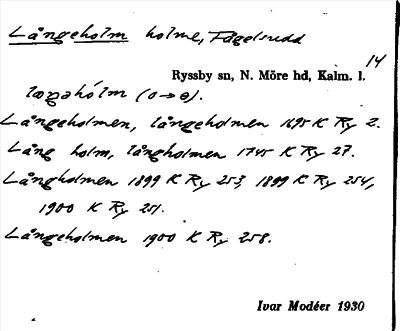 Långeholm holme, Fågelsudd
14
Ryssby sn, N. Möre hd, Kalm. l.
laŋəhólm (o→ɵ).
Långeholmen, långeholmen 1695 K Ry 2.
Lång holm, långholmen 1745 K Ry 27.
Långholmen 1899 K Ry 253, 1899 K Ry 254,
1900 K Ry 251.
Långeholmen 1900 K Ry 258.
Ivar Modéer 1930